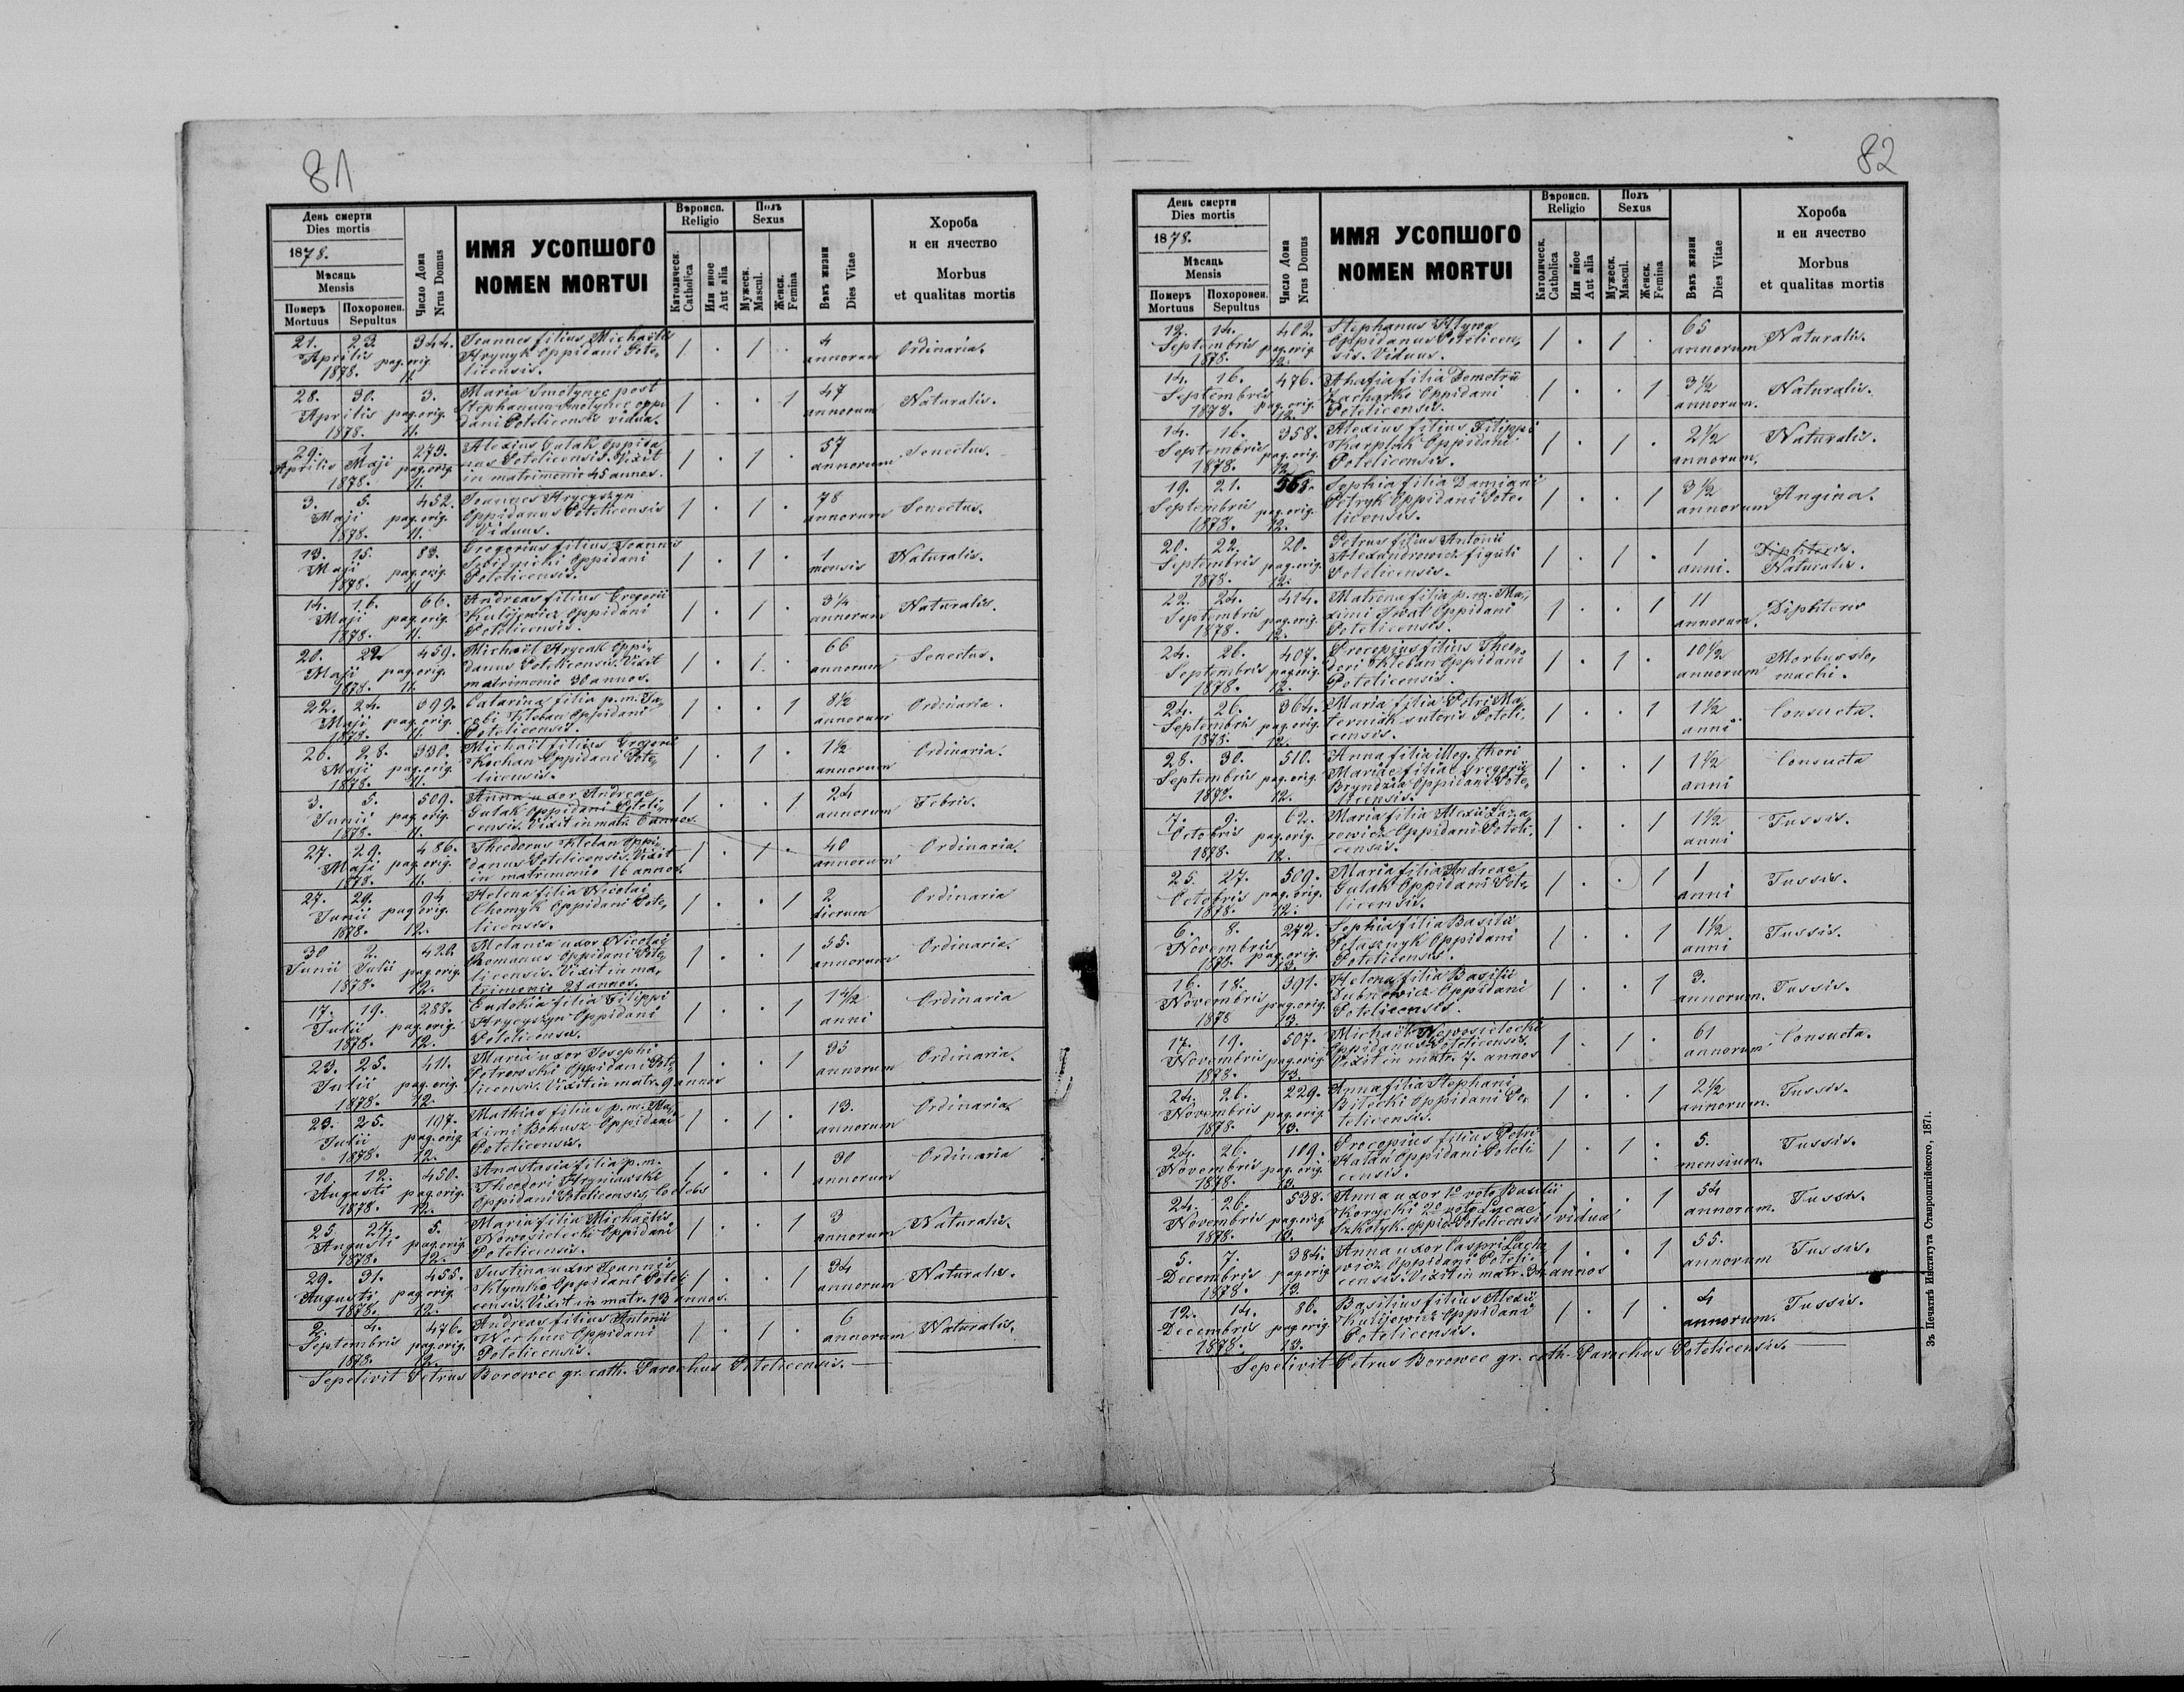 81
День смерти
Dies mortis
1878.
Мѣсяць
Mensis
Померъ
Mortuus
Похоронен.
Sepultus
Число Дома
Nrus Domus
ИМЯ УСОПШОГО
NOMEN MORTUI
Вѣроисп.
Religio
Католическ.
Catholica
Или иное
Aut alia
Полъ
Sexus
Мужеск.
Mascul.
Женск.
Femina
Вѣкъ жизни
Dies Vitae
Хороба
и еи ячество
Morbus
et qualitas mortis
21. 23. 344. Joannes filius Michaëlis
Aprilis pag. orig. Hrynyk Oppidani Pote, 1 . 1 . 4 annorum Ordinaria.
1878. 11. licensis.
28. 30. 3. Maria Smolynec post
Aprilis pag. orig. Stephanum Smolynec oppi 1 . . 1 47 annorum Naturalis.
1878. 11. dani Potelicensis vidua.
29. 1 273. Alexius Gulak Oppida
Aprilis Maji pag. orig. nus Potelicensis. Vixit 1 . 1 . 57 annorum Senectus.
1878. 11. in matrimonio 45 annos.
3. 5. 452. Joannes Hrycyszyn
Maji pag. orig. Oppidanus Potelicensis 1 . 1 . 78 annorum Senectus.
1878. 11. Viduus.
13. 15. 83. Gregorius filius Joannis
Maji pag. orig. Oppidani 1 . 1 . 1 mensis Naturalis.
1878. 11 Potelicensis.
14. 16. 66. Andreas filius Gregorii
Maji pag. orig. Kulijewicz Oppidani 1 . 1 . 3¼ annorum Naturalis.
1878. 11. Potelicensis.
20. 22 459. Michaël Hrycak Oppi,
Maji pag. orig. danus Potelicensis. Vixit 1 . 1 . 66 annorum Senectus.
1878. 11. matrimonio 30 annos.
22. 24. Catarina filia p. m. Ja,
Maji pag. orig. cobi Kleban Oppidani 1 . . 1 8½ annorum Ordinaria.
1878. 11. Potelicensis.
26. 28. 330. Michaël filius Gregorii
Maji pag. orig. Kochan Oppidani Pote, 1 . 1 . 1½ annorum Ordinaria.
1878. 11. licensis.
3. 5. 509. Anna uxor Andreae
Junii pag. orig. Gulak Oppidani Poteli, 1 . . 1 24 annorum Febris.
1878. 11. censis. Vixit in matr. 6 annos.
27. 29. 486. Theodorus Kleban Oppi,
Maji pag. orig. danus Potelicensis. Vixit 1 . 1 . 40 annorum Ordinaria.
1878. 11. in matrimonio 16 annos.
27. 29. 94 Helena filia Nicolai
Junii pag. orig. Chomyk Oppidani Pote, 1 . . 1 2 dierum Ordinaria
1878. 12. licensis.
30 2. 420. Melania uxor Nicolai
Junii Julii pag. orig. Romanus Oppidani Pote, 1 . . 1 55. annorum Ordinaria.
1878. 12. licensis. Vixit in ma,
trimonio 28 annos.
17. 19. 288. Eudokia filia Filippi
Julii pag. orig. Hrycyszyn Oppidani 1 . . 1 1½ anni Ordinaria
1878. 12. Potelicensis.
23. 25. 411. Maria uxor Josephi
Julii pag. orig. Petrowski Oppidani Pote, 1 . . 1 35 annorum Ordinaria.
1878. 12. licensis. Vixit in matr. 9 annos
23. 25. 197. Mathias filius p. m. Ma,
Julii pag. orig. ximi Bokusz Oppidani 1 . 1 . 13. annorum Ordinaria.
1878. 12. Potelicensis.
10. 12. 450. Anastasia filia p. m.
Augusti pag. orig. Theodori Hryniawski 1 . . 1 30 annorum Ordinaria
1878. 12. Oppidani Potelicensis, Coelebs
25 27. 5. Maria filia Michaëlis
Augusti pag. orig. Nowosielecki Oppidani 1 . . 1 3 annorum Naturalis.
1878. 12. Potelicensis.
29. 31. 455. Justina uxor Joannis
Augusti pag. orig. Klymko Oppidani Poteli 1 . . 1 34 annorum Naturalis.
1878. 12. censis. Vixit in matr. 13 annos.
2. 4. 476. Andreas filius Antonii
Septembris pag. orig. Werhun Oppidani 1 . 1 . 6 annorum Naturalis.
1878. 12. Potelicensis.
Sepelivit Petrus Borowec gr. cath. Parochus Potelicensis.
82
День смерти
Dies mortis
1878.
Мѣсяць
Mensis
Померъ
Mortuus
Похоронен.
Sepultus
Число Дома
Nrus Domus
ИМЯ УСОПШОГО
NOMEN MORTUI
Вѣроисп.
Religio
Католическ.
Catholica
Или иное
Aut alia
Полъ
Sexus
Мужеск.
Mascul.
Женск.
Femina
Вѣкъ жизни
Dies Vitae
Хороба
и еи ячество
Morbus
et qualitas mortis
12. 14. 402. Stephanus Hlywa
Septembris pag. orig. Oppidanus Potelicen, 1 . 1 . 65 annorum Naturalis.
1878. 12. sis. Viduus.
14. 16. 476. Ahafia filia Demetrii
Septembris pag. orig. Zacharko Oppidani 1 . . 1 3½ annorum. Naturalis.
1878. 12. Potelicensis.
14. 16. 358. Alexius filius Filippi
Septembris pag. orig. Karplak Oppidani 1 . 1 . 2½ annorum. Naturalis.
1878. 12. Potelicensis.
19. 21. 568. Sophia filia Damiani
Septembris pag. orig. Petryk Oppidani Pote, 1 . . 1 3½ annorum Angina.
1878. 12. licensis.
20. 22. 20. Petrus filius Antonii
Septembris pag. orig. Alexandrowicz figuli 1 . 1 . 1 anni. Diphteris. Naturalis.
1878. 12. Potelicensis.
22. 24. 414. Matrona filia p. m. Ma,
Septembris pag. orig. ximi Oppidani 1 . . 1 11 annorum. Diphteris
1878. 12. Potelicensis.
24. 26. 407. Procopius filius Theo,
Septembris pag. orig. dori Kleban Oppidani 1 . 1 . 10½ annorum Morbus sto, machi.
1878. 12. Potelicensis.
24. 26. 364. Maria filia Petri Ma,
Septembris pag. orig. terniak sutoris Poteli 1 . . 1 1½ anni Consueta.
1878. 12. censis.
28. 30. 510. Anna filia illeg. thori
Septembris pag. orig. Mariae filiae Gregorii 1 . . 1 1½ anni Consueta
1878. 12. Bryndzia Oppidani Pote,
licensis.
7. 9. 62. Maria filia Alexii Laza,
Octobris pag. orig. rowicz Oppidani Poteli, 1 . . 1 1½ anni Tussis.
1878. 12. censis.
25. 27. 509. Maria filia Andreae
Octobris pag. orig. Gulak Oppidani Pote, 1 . . 1 1 anni Tussis.
1878. 12. licensis.
6. 8. 272. Sophia filia Basilii
Novembris pag. orig. Ptasznyk Oppidani 1 . . 1 1½ anni Tussis.
1878. 13. Potelicensis.
16. 18. 391. Helena filia Basilii
Novembris pag. orig. Dubnewicz Oppidani 1 . . 1 3. annorum. Tussis.
1878 13. Potelicensis.
17. 19. 507. Michaël Nowosielecki
Novembris pag. orig. Oppidanus Potelicensis. 1 . 1 . 61 annorum. Consueta.
1878. 13. Vixit in matr. 7. annos
24. 26. 229. Anna filia Stephani
Novembris pag. orig. Bilecki Oppidani Po, 1 . . 1 2½ annorum. Tussis.
1878. 13. telicensis.
24. 26. 109. Procopius filius Petri
Novembris pag. orig. Kalan Oppidani Poteli 1 . 1 . 5. mensium. Tussis.
1878. 13. censis.
24. 26. 538. Anna uxor 1º voto Basilii
Novembris pag. orig. Korycki 2º voto Lucae 1 . . 1 54 annorum. Tussis.
1878. 13. Szkolyk. oppid. Potelicensis vidua
5. 7. 384. Anna uxor Caspri Lacho,
Decembris pag. orig. wicz Oppidani Poteli, 1 . . 1 55. annorum Tussis.
1878. 13. censis. Vixit in matr. 34 annos
12. 14. 86. Basilius filius Alexii
Decembris pag. orig. Kulijewicz Oppidani 1 . 1 . 4 annorum. Tussis.
1878. 13. Potelicensis.
Sepelivit Petrus Borowec gr. cath. Parochus Potelicensis.
Зъ Печатнѣ Института Ставропигійского, 1871.